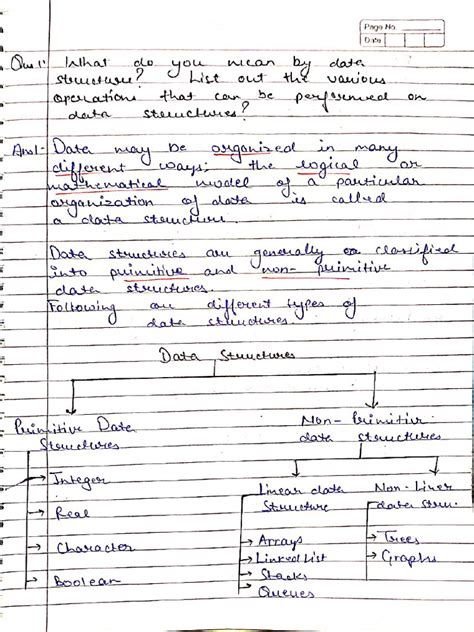 Page No.
Date
Ques 1:- What do you mean by data
structure? List out the various
operations that can be performed on
data structures?
Ans1- Data may be organized in many
different ways; the logical or
mathematical model of a particular
organization of data is called
a data structure.
Data structures are generally classified
into primitive and non-primitive
data structures.
Following are different types of
data structures.
Data Structures
Primitive Data
Structures
→ Integer
→ Real
→ Character
→ Boolean
Non-Primitive
data structures
Linear data
Structure
→ Arrays
→ Linked List
→ Stacks
→ Queues
Non-Liner
data struc.
→ Trees
→ Graphs